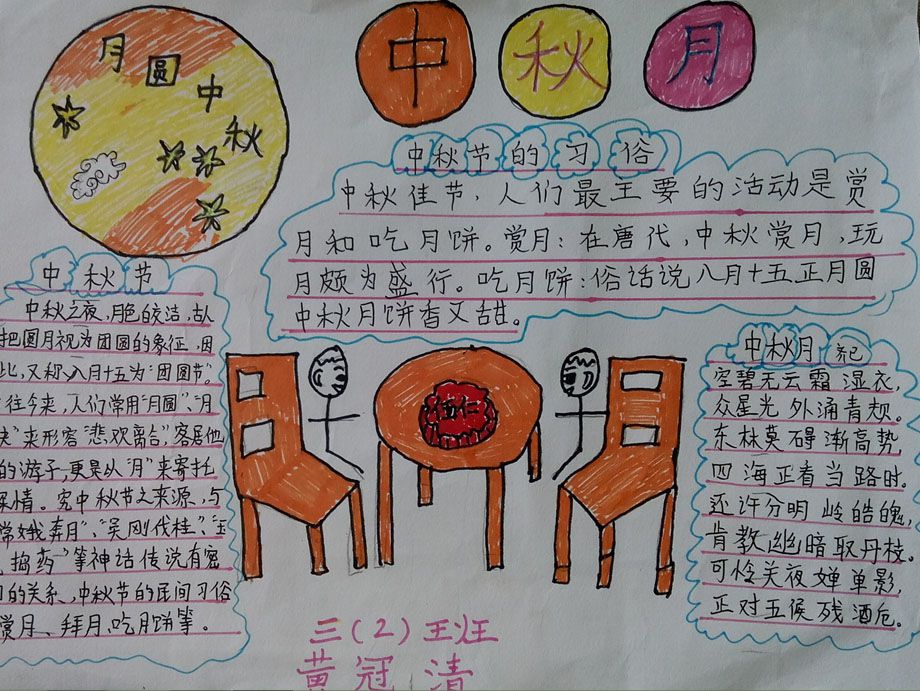 月圆中秋
中秋月
中秋节的习俗
中秋佳节，人们最主要的活动是赏
月和吃月饼。赏月：在唐代，中秋赏月，玩
月颇为盛行。吃月饼：俗话说八月十五正月圆
中秋月饼香又甜。
中秋节
中秋之夜，月色皎洁，古人
把圆月视为团圆的象征，因
此，又称八月十五为“团圆节”。
往今来，人们常用“月圆”、“月
”来形容“悲欢离合”，客居他
的游子，更是从“月”来寄托
深情。究中秋节之来源，与
“嫦娥奔月”、“吴刚伐桂”、“玉
捣药”等神话传说有密
的关系，中秋节的民间习俗
赏月、拜月、吃月饼等。
伍仁
中秋月
空碧无云霜湿衣，
众星光外涌青规。
东林莫碍渐高势
四海正看当路时。
还许分明岭皓魄，
肯教幽暗取丹枝。
可怜关夜婵单影，
正对五候残酒卮。
三(2)王
黄冠清